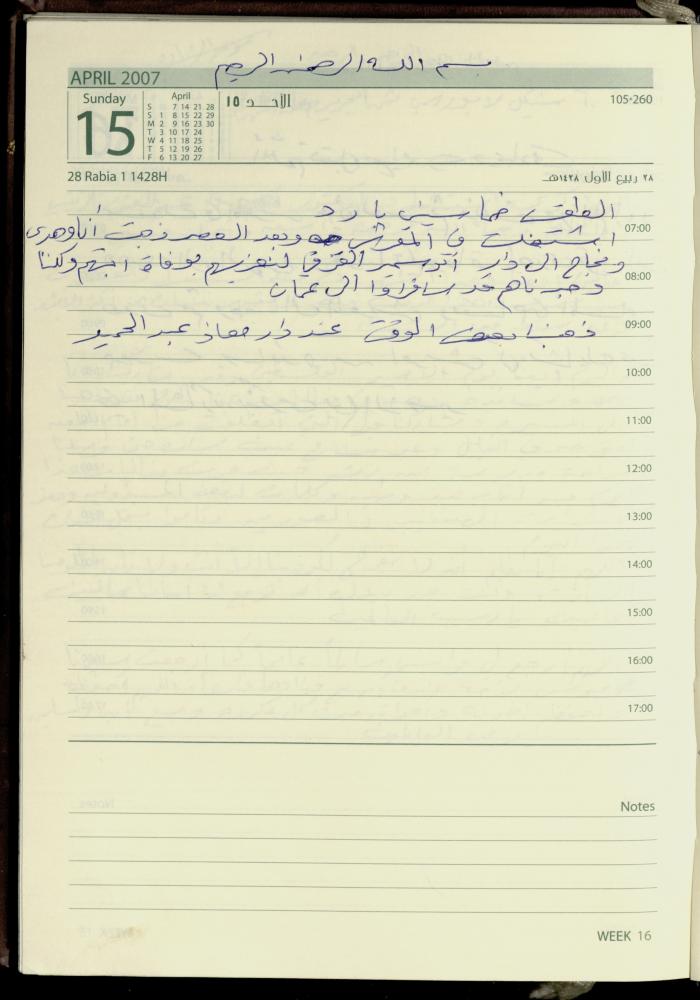 بسم الله الرحمن الرحيم
APRIL 2007
Sunday
15
April
S 7 14 21 28
S 1 8 15 22 29
M 2 9 16 23 30
T 3 10 17 24
W 4 11 18 25
T 5 12 19 26
F 6 13 20 27
الأحد ١٥
105-260
28 Rabia 1 1428H
٢٨ ربيع الأول ١٤٢٨هـ
الطقس خماسيني بارد
07:00
اشتغلت في المفرش وبعد العصر ذهبت أنا وهدى
ونجاح الى دار أبو سمير القرفي لنعزيهم بوفاة ابنهم وكنا
08:00
وجدناهم قد سافروا الى عمان
09:00
ذهبنا بعض الوقت عند دار معاذ عبد الحميد
10:00
11:00
12:00
13:00
14:00
15:00
16:00
17:00
Notes
WEEK 16